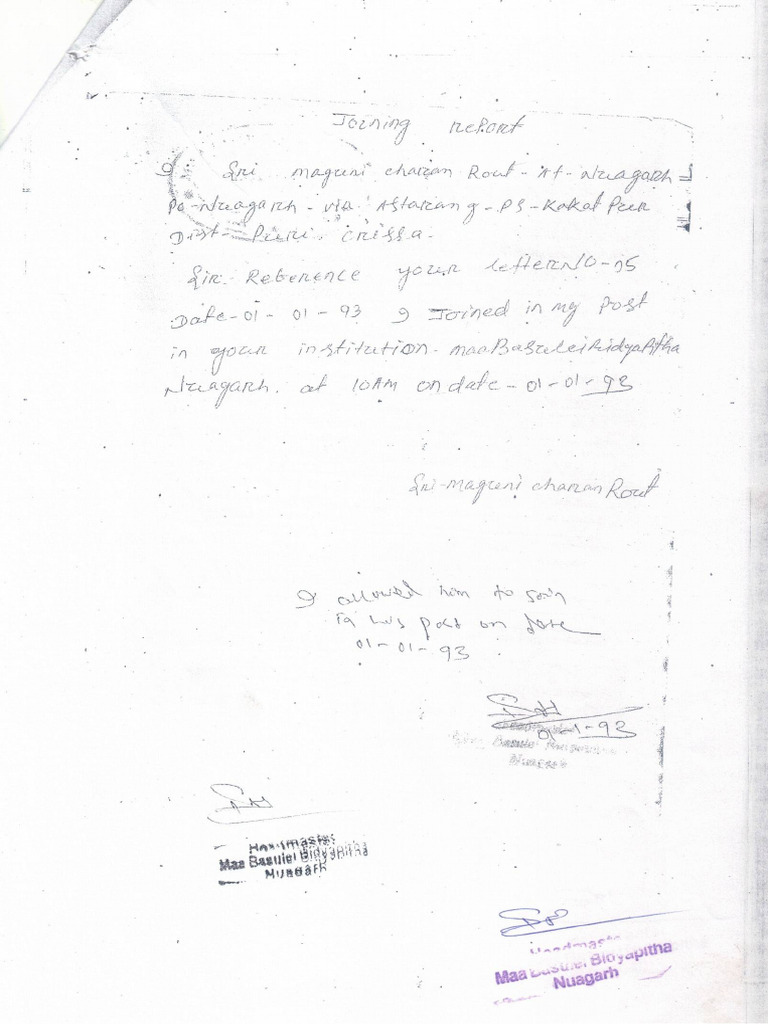 Joining report
I Sri maguni charan Rout - At - Nuagarh
Po - Nuagarh - via Astarang - PS - Kakat Pur
Dist - Puri. Orissa.
Sir Reference your letter NO - 75
Date - 01 - 01 - 93 I Joined in my Post
in your institution. maa Basulei Bidya Pitha
Nuagarh. at 10 AM on date - 01 - 01 - 93
Sri - maguni charan Rout
I allowed him to join
in his post on date
01 - 01 - 93
01-1-93
Nuagarh
Headmaster
Maa Basulei Bidyapitha
Nuagarh
Headmaster
Maa Basulei Bidyapitha
Nuagarh